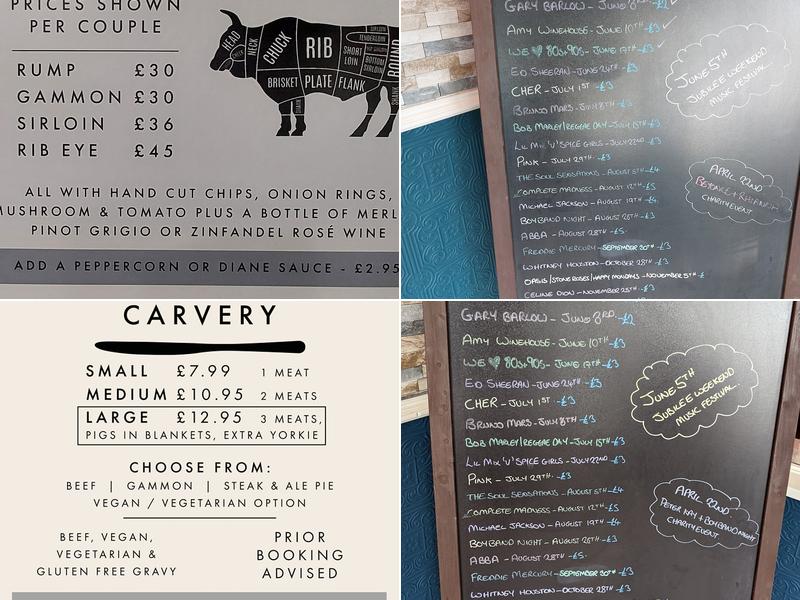 PRICES SHOWN
PER COUPLE
RUMP £30
GAMMON £30
SIRLOIN £36
RIB EYE £45
HEAD
NECK
CHUCK
RIB
SHORT LOIN
SIRLOIN
TENDERLOIN
BOTTOM SIRLOIN
ROUND
BRISKET
PLATE
FLANK
SHANK
SHANK
ALL WITH HAND CUT CHIPS, ONION RINGS,
MUSHROOM & TOMATO PLUS A BOTTLE OF MERL
PINOT GRIGIO OR ZINFANDEL ROSÉ WINE
ADD A PEPPERCORN OR DIANE SAUCE - £2.95
GARY BARLOW - JUNE 3RD - £2
AMY WINEHOUSE - JUNE 10TH - £3
WE ♥ 80s+90s - JUNE 17TH - £3
ED SHEERAN - JUNE 24TH - £3
CHER - JULY 1ST - £3
BRUNO MARS - JULY 8TH - £3
BOB MARLEY/REGGAE DAY - JULY 15TH - £3
LIL MIX 'V' SPICE GIRLS - JULY 22ND - £3
PINK - JULY 29TH - £3
THE SOUL SENSATIONS - AUGUST 5TH - £4
COMPLETE MADNESS - AUGUST 12TH - £5
MICHAEL JACKSON - AUGUST 19TH - £4
BOYBAND NIGHT - AUGUST 26TH - £3
ABBA - AUGUST 28TH - £5
FREDDIE MERCURY - SEPTEMBER 30TH - £3
WHITNEY HOUSTON - OCTOBER 28TH - £3
OASIS/STONE ROSES/HAPPY MONDAYS - NOVEMBER 5TH - £
CELINE DION - NOVEMBER 25TH - £3
JUNE 5TH
JUBILEE WEEKEND
MUSIC FESTIVAL..
APRIL 22ND
BEYONCE + RIHANNA
CHARITY EVENT
CARVERY
SMALL £7.99 1 MEAT
MEDIUM £10.95 2 MEATS
LARGE £12.95 3 MEATS,
PIGS IN BLANKETS, EXTRA YORKIE
CHOOSE FROM:
BEEF | GAMMON | STEAK & ALE PIE
VEGAN / VEGETARIAN OPTION
BEEF, VEGAN,
VEGETARIAN &
GLUTEN FREE GRAVY
PRIOR
BOOKING
ADVISED
GARY BARLOW - JUNE 3RD - £2
AMY WINEHOUSE - JUNE 10TH - £3
WE ♥ 80s+90s - JUNE 17TH - £3
ED SHEERAN - JUNE 24TH - £3
CHER - JULY 1ST - £3
BRUNO MARS - JULY 8TH - £3
BOB MARLEY/REGGAE DAY - JULY 15TH - £3
LIL MIX 'V' SPICE GIRLS - JULY 22ND - £3
PINK - JULY 29TH - £3
THE SOUL SENSATIONS - AUGUST 5TH - £4
COMPLETE MADNESS - AUGUST 12TH - £5
MICHAEL JACKSON - AUGUST 19TH - £4
BOYBAND NIGHT - AUGUST 26TH - £3
ABBA - AUGUST 28TH - £5
FREDDIE MERCURY - SEPTEMBER 30TH - £3
WHITNEY HOUSTON - OCTOBER 28TH - £3
JUNE 5TH
JUBILEE WEEKEND
MUSIC FESTIVAL..
APRIL 22ND
PETER KAY + BOYBAND NIGHT
CHARITY EVENT